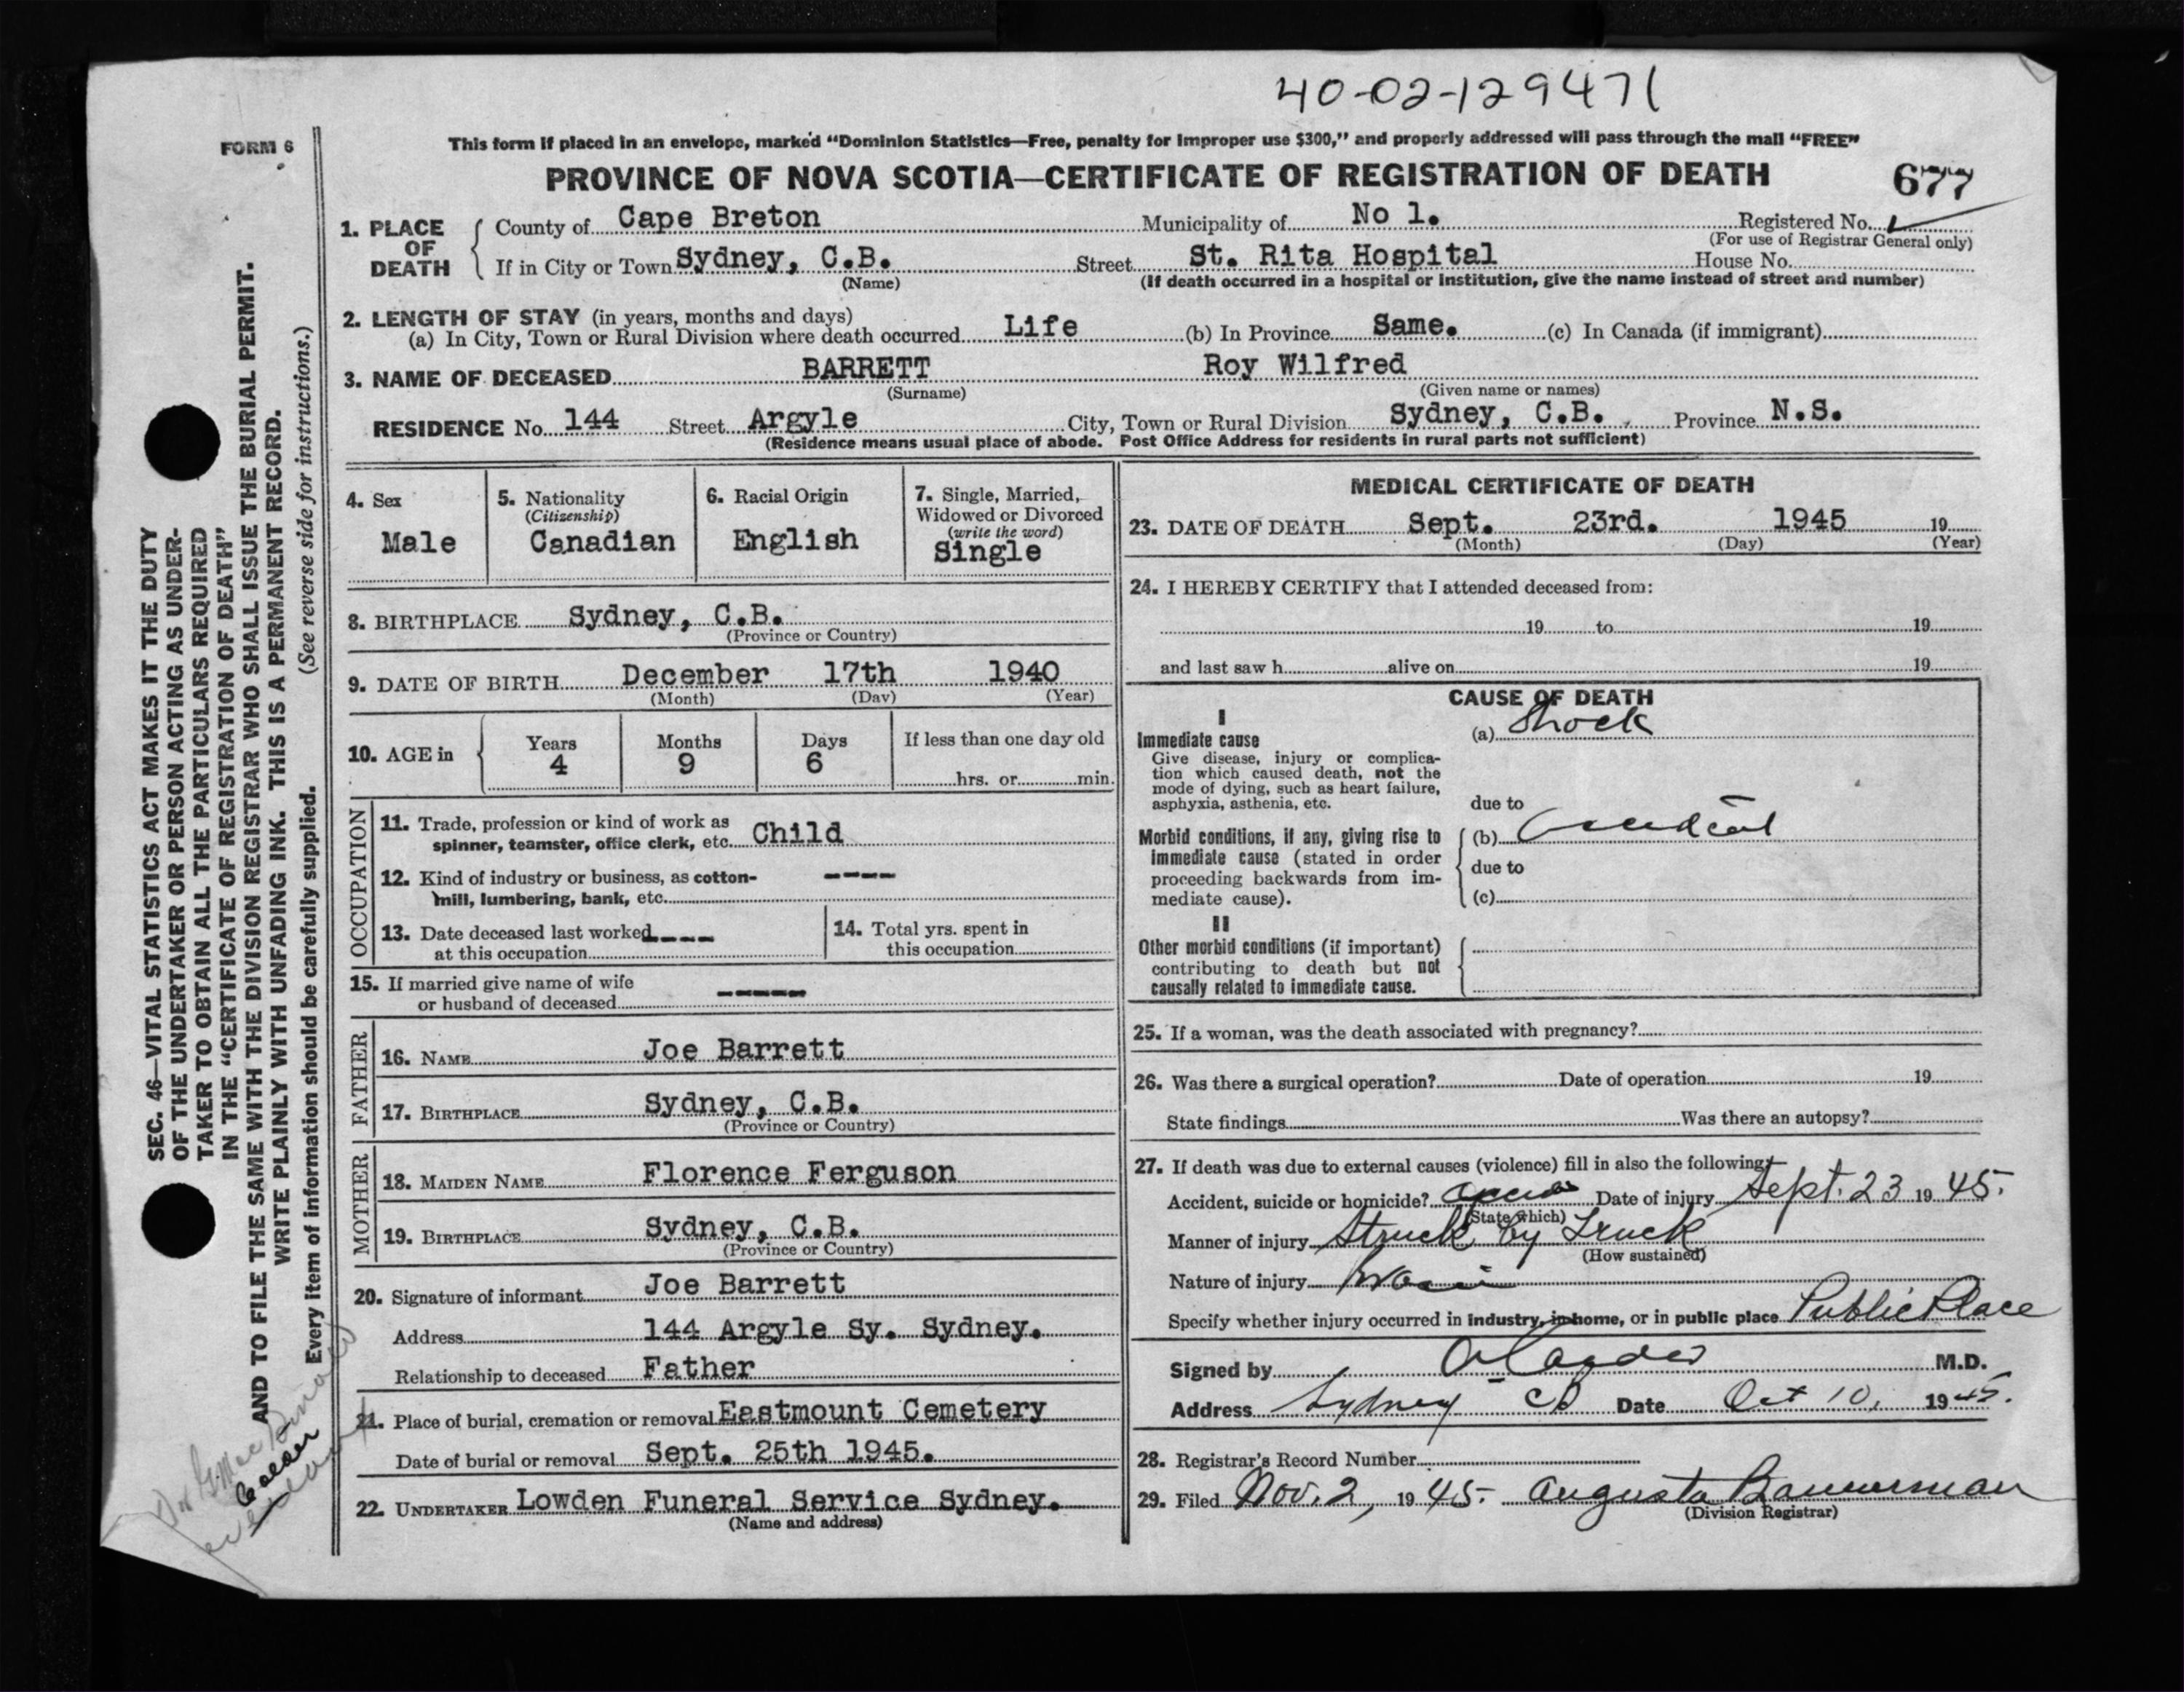 40-02-129471
FORM 6
This form if placed in an envelope, marked "Dominion Statistics—Free, penalty for improper use $300," and properly addressed will pass through the mail "FREE"
PROVINCE OF NOVA SCOTIA—CERTIFICATE OF REGISTRATION OF DEATH 677
1. PLACE OF DEATH
County of Cape Breton Municipality of No 1. Registered No.
(For use of Registrar General only)
If in City or Town Sydney, C.B. Street St. Rita Hospital House No.
(Name) (If death occurred in a hospital or institution, give the name instead of street and number)
2. LENGTH OF STAY (in years, months and days)
(a) In City, Town or Rural Division where death occurred Life (b) In Province Same. (c) In Canada (if immigrant)
3. NAME OF DECEASED BARRETT Roy Wilfred
(Surname) (Given name or names)
RESIDENCE No. 144 Street Argyle City, Town or Rural Division Sydney, C.B. Province N.S.
(Residence means usual place of abode. Post Office Address for residents in rural parts not sufficient)
4. Sex
Male
5. Nationality
(Citizenship)
Canadian
6. Racial Origin
English
7. Single, Married,
Widowed or Divorced
(write the word)
Single
8. BIRTHPLACE Sydney, C.B.
(Province or Country)
9. DATE OF BIRTH December 17th 1940
(Month) (Day) (Year)
10. AGE in Years Months Days If less than one day old
4 9 6 hrs. or min.
OCCUPATION
11. Trade, profession or kind of work as
spinner, teamster, office clerk, etc. Child
12. Kind of industry or business, as cotton- ----
mill, lumbering, bank, etc.
13. Date deceased last worked ----
at this occupation
14. Total yrs. spent in
this occupation
15. If married give name of wife
or husband of deceased -----
FATHER
16. NAME Joe Barrett
17. BIRTHPLACE Sydney, C.B.
(Province or Country)
MOTHER
18. MAIDEN NAME Florence Ferguson
19. BIRTHPLACE Sydney, C.B.
(Province or Country)
20. Signature of informant Joe Barrett
Address 144 Argyle Sy. Sydney.
Relationship to deceased Father
21. Place of burial, cremation or removal Eastmount Cemetery
Date of burial or removal Sept. 25th 1945.
22. UNDERTAKER Lowden Funeral Service Sydney.
(Name and address)
MEDICAL CERTIFICATE OF DEATH
23. DATE OF DEATH Sept. 23rd. 1945 19
(Month) (Day) (Year)
24. I HEREBY CERTIFY that I attended deceased from:
19 to 19
and last saw h alive on 19
CAUSE OF DEATH
I
Immediate cause
Give disease, injury or complica-
tion which caused death, not the
mode of dying, such as heart failure,
asphyxia, asthenia, etc.
(a) Shock
due to
Morbid conditions, if any, giving rise to
immediate cause (stated in order
proceeding backwards from im-
mediate cause).
(b) Accident
due to
(c)
II
Other morbid conditions (if important)
contributing to death but not
causally related to immediate cause.
25. If a woman, was the death associated with pregnancy?
26. Was there a surgical operation? Date of operation 19
State findings Was there an autopsy?
27. If death was due to external causes (violence) fill in also the following:
Accident, suicide or homicide? Date of injury Sept. 23 19 45.
(State which)
Manner of injury Struck by Truck
(How sustained)
Nature of injury
Specify whether injury occurred in industry, in home, or in public place Public Place
Signed by M.D.
Address Sydney CB Date Oct 10, 1945.
28. Registrar's Record Number
29. Filed Nov. 2, 19 45. Augusta Bannerman
(Division Registrar)
SEC. 46—VITAL STATISTICS ACT MAKES IT THE DUTY
OF THE UNDERTAKER OR PERSON ACTING AS UNDER-
TAKER TO OBTAIN ALL THE PARTICULARS REQUIRED
IN THE "CERTIFICATE OF REGISTRATION OF DEATH"
AND TO FILE THE SAME WITH THE DIVISION REGISTRAR WHO SHALL ISSUE THE BURIAL PERMIT.
WRITE PLAINLY WITH UNFADING INK. THIS IS A PERMANENT RECORD.
Every item of information should be carefully supplied. (See reverse side for instructions.)